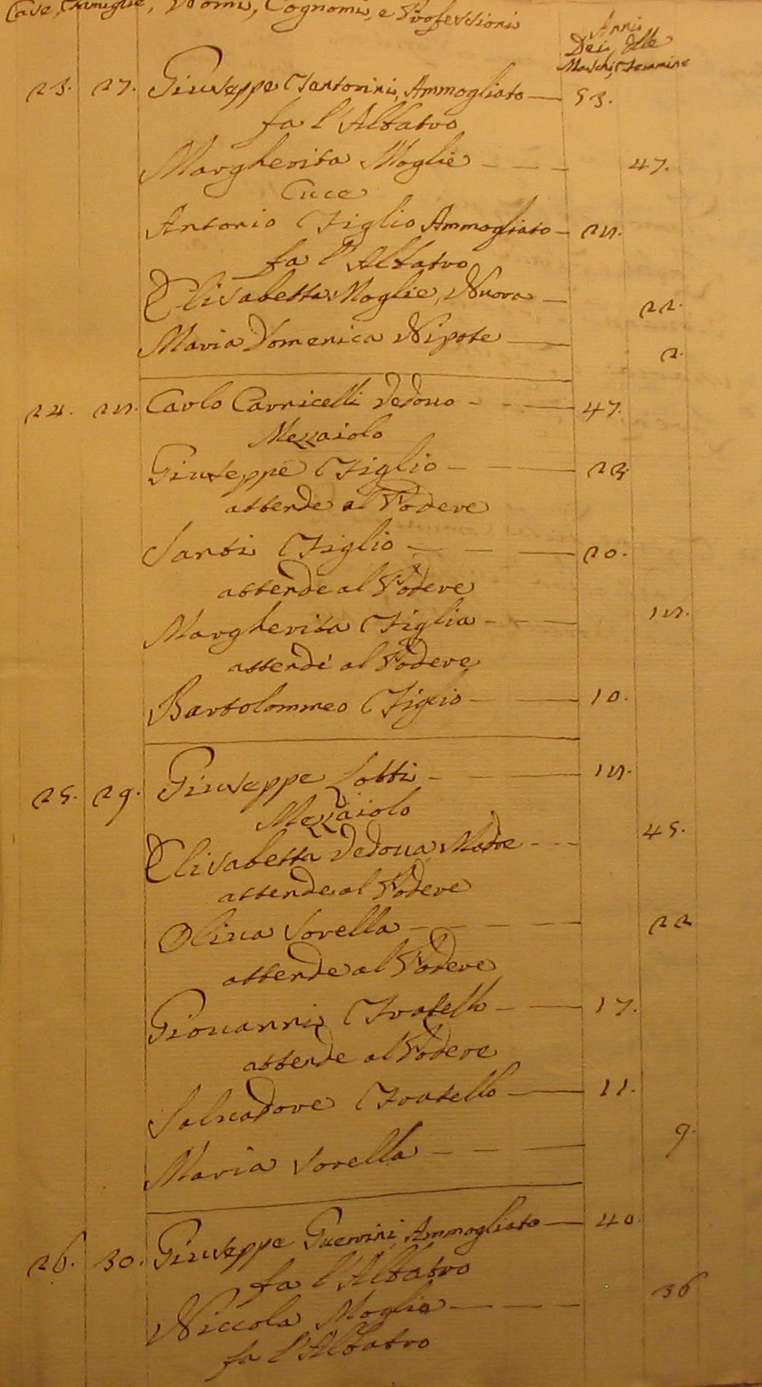 Case, Famiglie, Nomi, Cognomi, e Professioni Anni
Dei Delle
Maschi, Femmine
23. 27. Giuseppe Fantonini, Ammogliato 53.
fa l'Albatro
Margherita Moglie 47.
Cuce
Antonio Figlio Ammogliato 28.
fa l'Albatro
Elisabetta Moglie, Nuora 22.
Maria Domenica Nipote 2.
24. 28. Carlo Carnicelli Vedovo 47.
Mezzaiolo
Giuseppe Figlio 23
attende al Podere
Santi Figlio 20.
attende al Podere
Margherita Figlia 18.
attende al Podere
Bartolommeo Figlio 10.
25. 29. Giuseppe Lotti 18.
Mezzaiolo
Elisabetta Vedova Madre 45.
attende al Podere
Oliva Sorella 22
attende al Podere
Giovanni Fratello 17.
attende al Podere
Salvadore Fratello 11.
Maria Sorella 9.
26. 30. Giuseppe Guerrini, Ammogliato 40.
fa l'Albatro
Niccola Moglie 36
fa l'Albatro